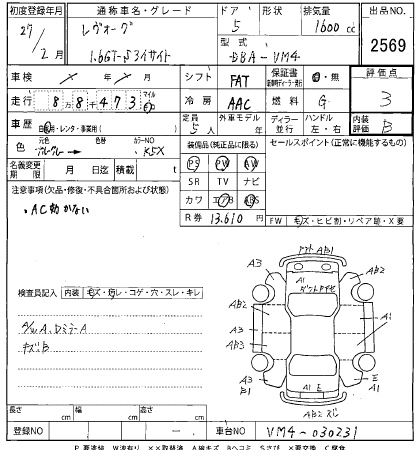 初度登録年月 通称車名・グレード ドア 形状 排気量 出品NO.
27/2月 レヴォーグ 5 1600cc
1.6GT-Sアイサイト 型式 DBA-VM4 2569
車検 シフト FAT 保証書 有・無 評価点 3
走行 8万8千473 マイル 冷房 AAC 燃料 G 内装評価 B
車歴 自家用・レンタ・事業用( ) 定員 5人 外車モデル 年 ディーラー 並行 ハンドル 左・右
色 元色 色替 カラーNO K5X 装備品(純正品に限る) セールスポイント(正常に機能するもの)
名義変更期限 月 日迄 積載 t PS PW AW
注意事項(欠品・修復・不具合箇所および状態) SR TV ナビ
・AC効かない カワ エアB ABS
R券 13,610 FW キズ・ヒビ割・リペア跡・X要
フロントA B1
A3 A1 AB2
検査員記入 内装 キズ・汚レ・コゲ・穴・スレ・キレ
AB2 A1
A/W A、DミラーA A3
キズB AB3
A3 B1 A1 E E A1
AB2
長さ cm 幅 cm 高さ cm
登録NO 車台NO VM4-030231
P 要塗装 W波有り ××取替済 A線キズ Bヘコミ Sさび ×要交換 C腐食